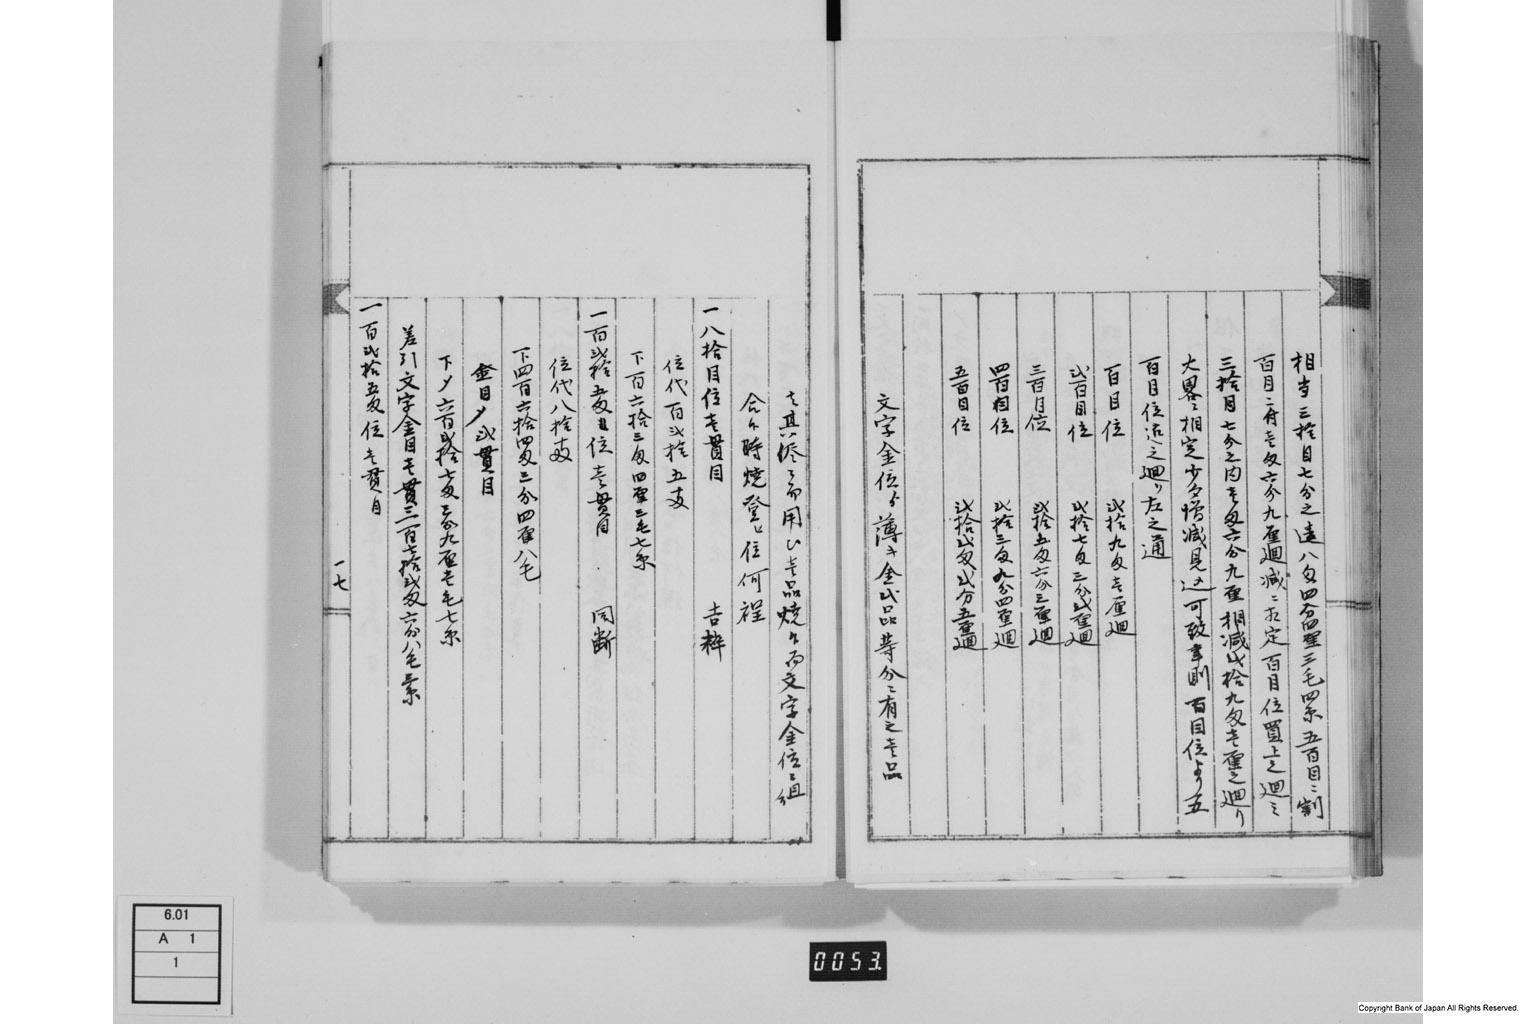 相当三拾目七分之違八匁四分四厘三毛四糸五百目ニ割
百目ニ付壱匁六分九厘廻減ニ相定百目位買上之廻ニ
三拾目七分之内壱匁六分九厘相減弐拾九匁壱厘之廻り
大畧ニ相定少々増減見込可致事則百目位より五
百目位迄之廻り左之通
百目位 弐拾九匁壱厘廻
弐百目位 弐拾七匁三分弐厘廻
三百目位 弐拾五匁六分三厘廻
四百目位 弐拾三匁九分四厘廻
五百目位 弐拾弐匁弐分五厘廻
文字金位より薄キ金弐品等分ニ有之壱品
者其儘ニ而用ひ壱品焼候而文字金位ニ組
合候時焼登せ位何程
一八拾目位壱貫目 吉粹
位代百弐拾五双
下百六拾三匁四厘三毛七糸
一百弐拾五匁位壱貫目 同断
位代八拾双
下四百六拾四匁三分四厘八毛
金目〆弐貫目
下〆六百弐拾七匁三分九厘壱毛七糸
差引文字金目壱貫三百七拾弐匁六分八毛三糸
一百弐拾五匁位壱貫目
一七
6.01
A 1
1
0053.
Copyright Bank of Japan All Rights Reserved.